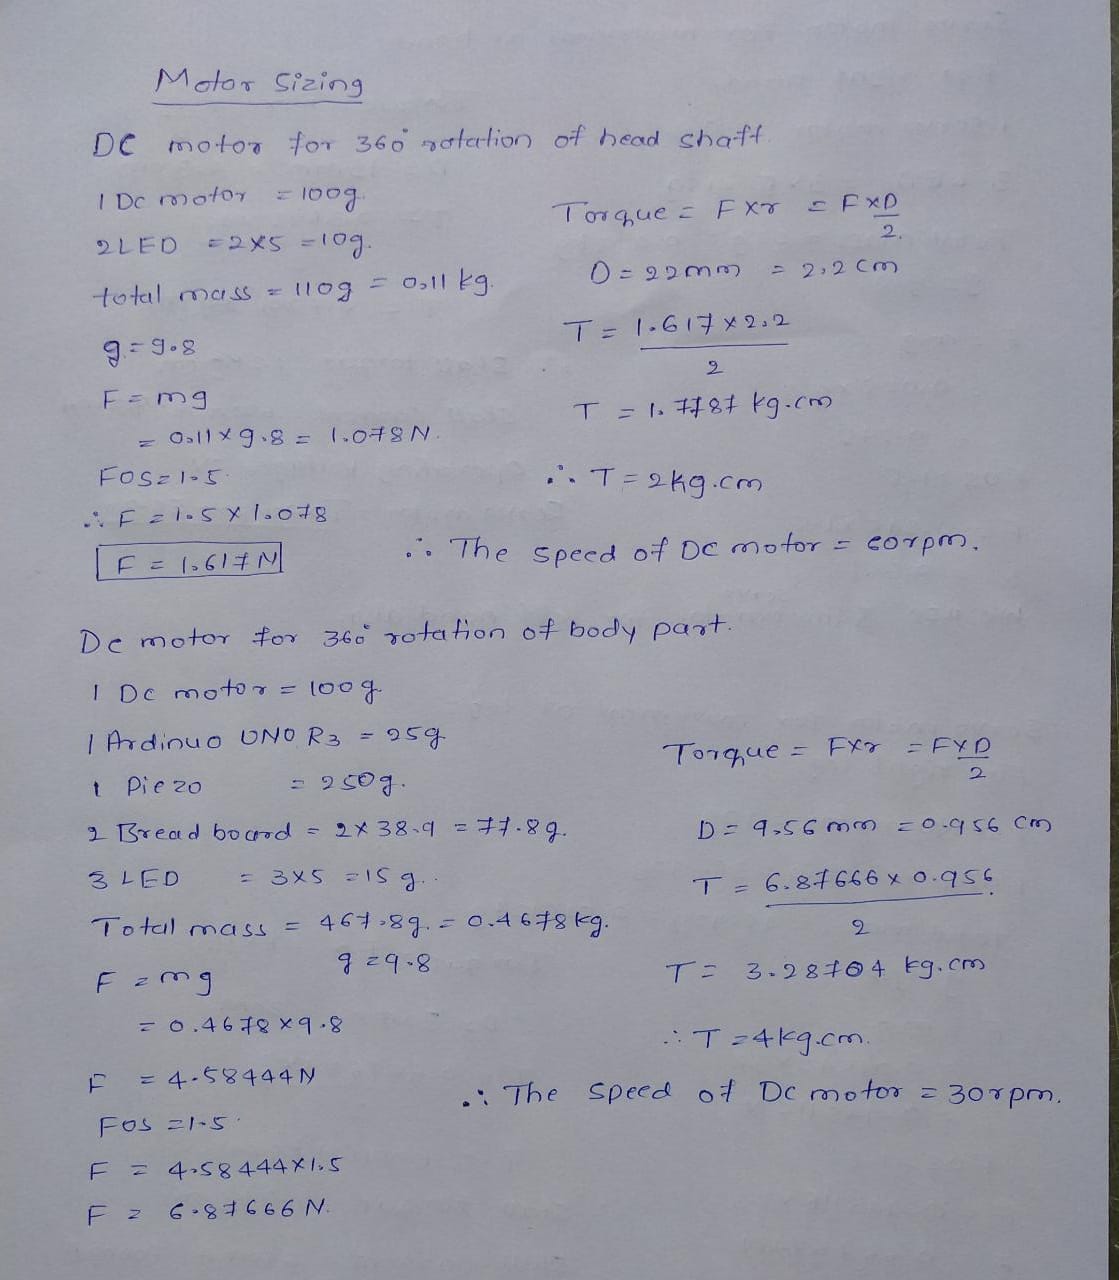 Motor Sizing
DC motor for 360° rotation of head shaft.
1 DC motor = 100g.
2 LED = 2x5 = 10g.
total mass = 110g = 0.11 kg.
g = 9.8
F = mg
= 0.11 x 9.8 = 1.078 N.
FOS = 1.5.
∴ F = 1.5 x 1.078
F = 1.617 N
Torque = F x r = F x D/2.
D = 22mm = 2.2 cm
T = 1.617 x 2.2 / 2
T = 1.7787 kg.cm
∴ T = 2kg.cm
∴ The speed of DC motor = 60rpm.
DC motor for 360° rotation of body part.
1 DC motor = 100g.
1 Ardinuo UNO R3 = 25g
1 Piezo = 250g.
2 Bread board = 2 x 38.9 = 77.8g.
3 LED = 3x5 = 15g..
Total mass = 467.8g. = 0.4678kg.
F = mg g = 9.8
= 0.4678 x 9.8
F = 4.58444N
FOS = 1.5.
F = 4.58444 x 1.5
F = 6.87666 N.
Torque = F x r = F x D/2
D = 9.56 mm = 0.956 cm
T = 6.87666 x 0.956 / 2
T = 3.28704 kg.cm
∴ T = 4kg.cm.
∴ The speed of DC motor = 30rpm.